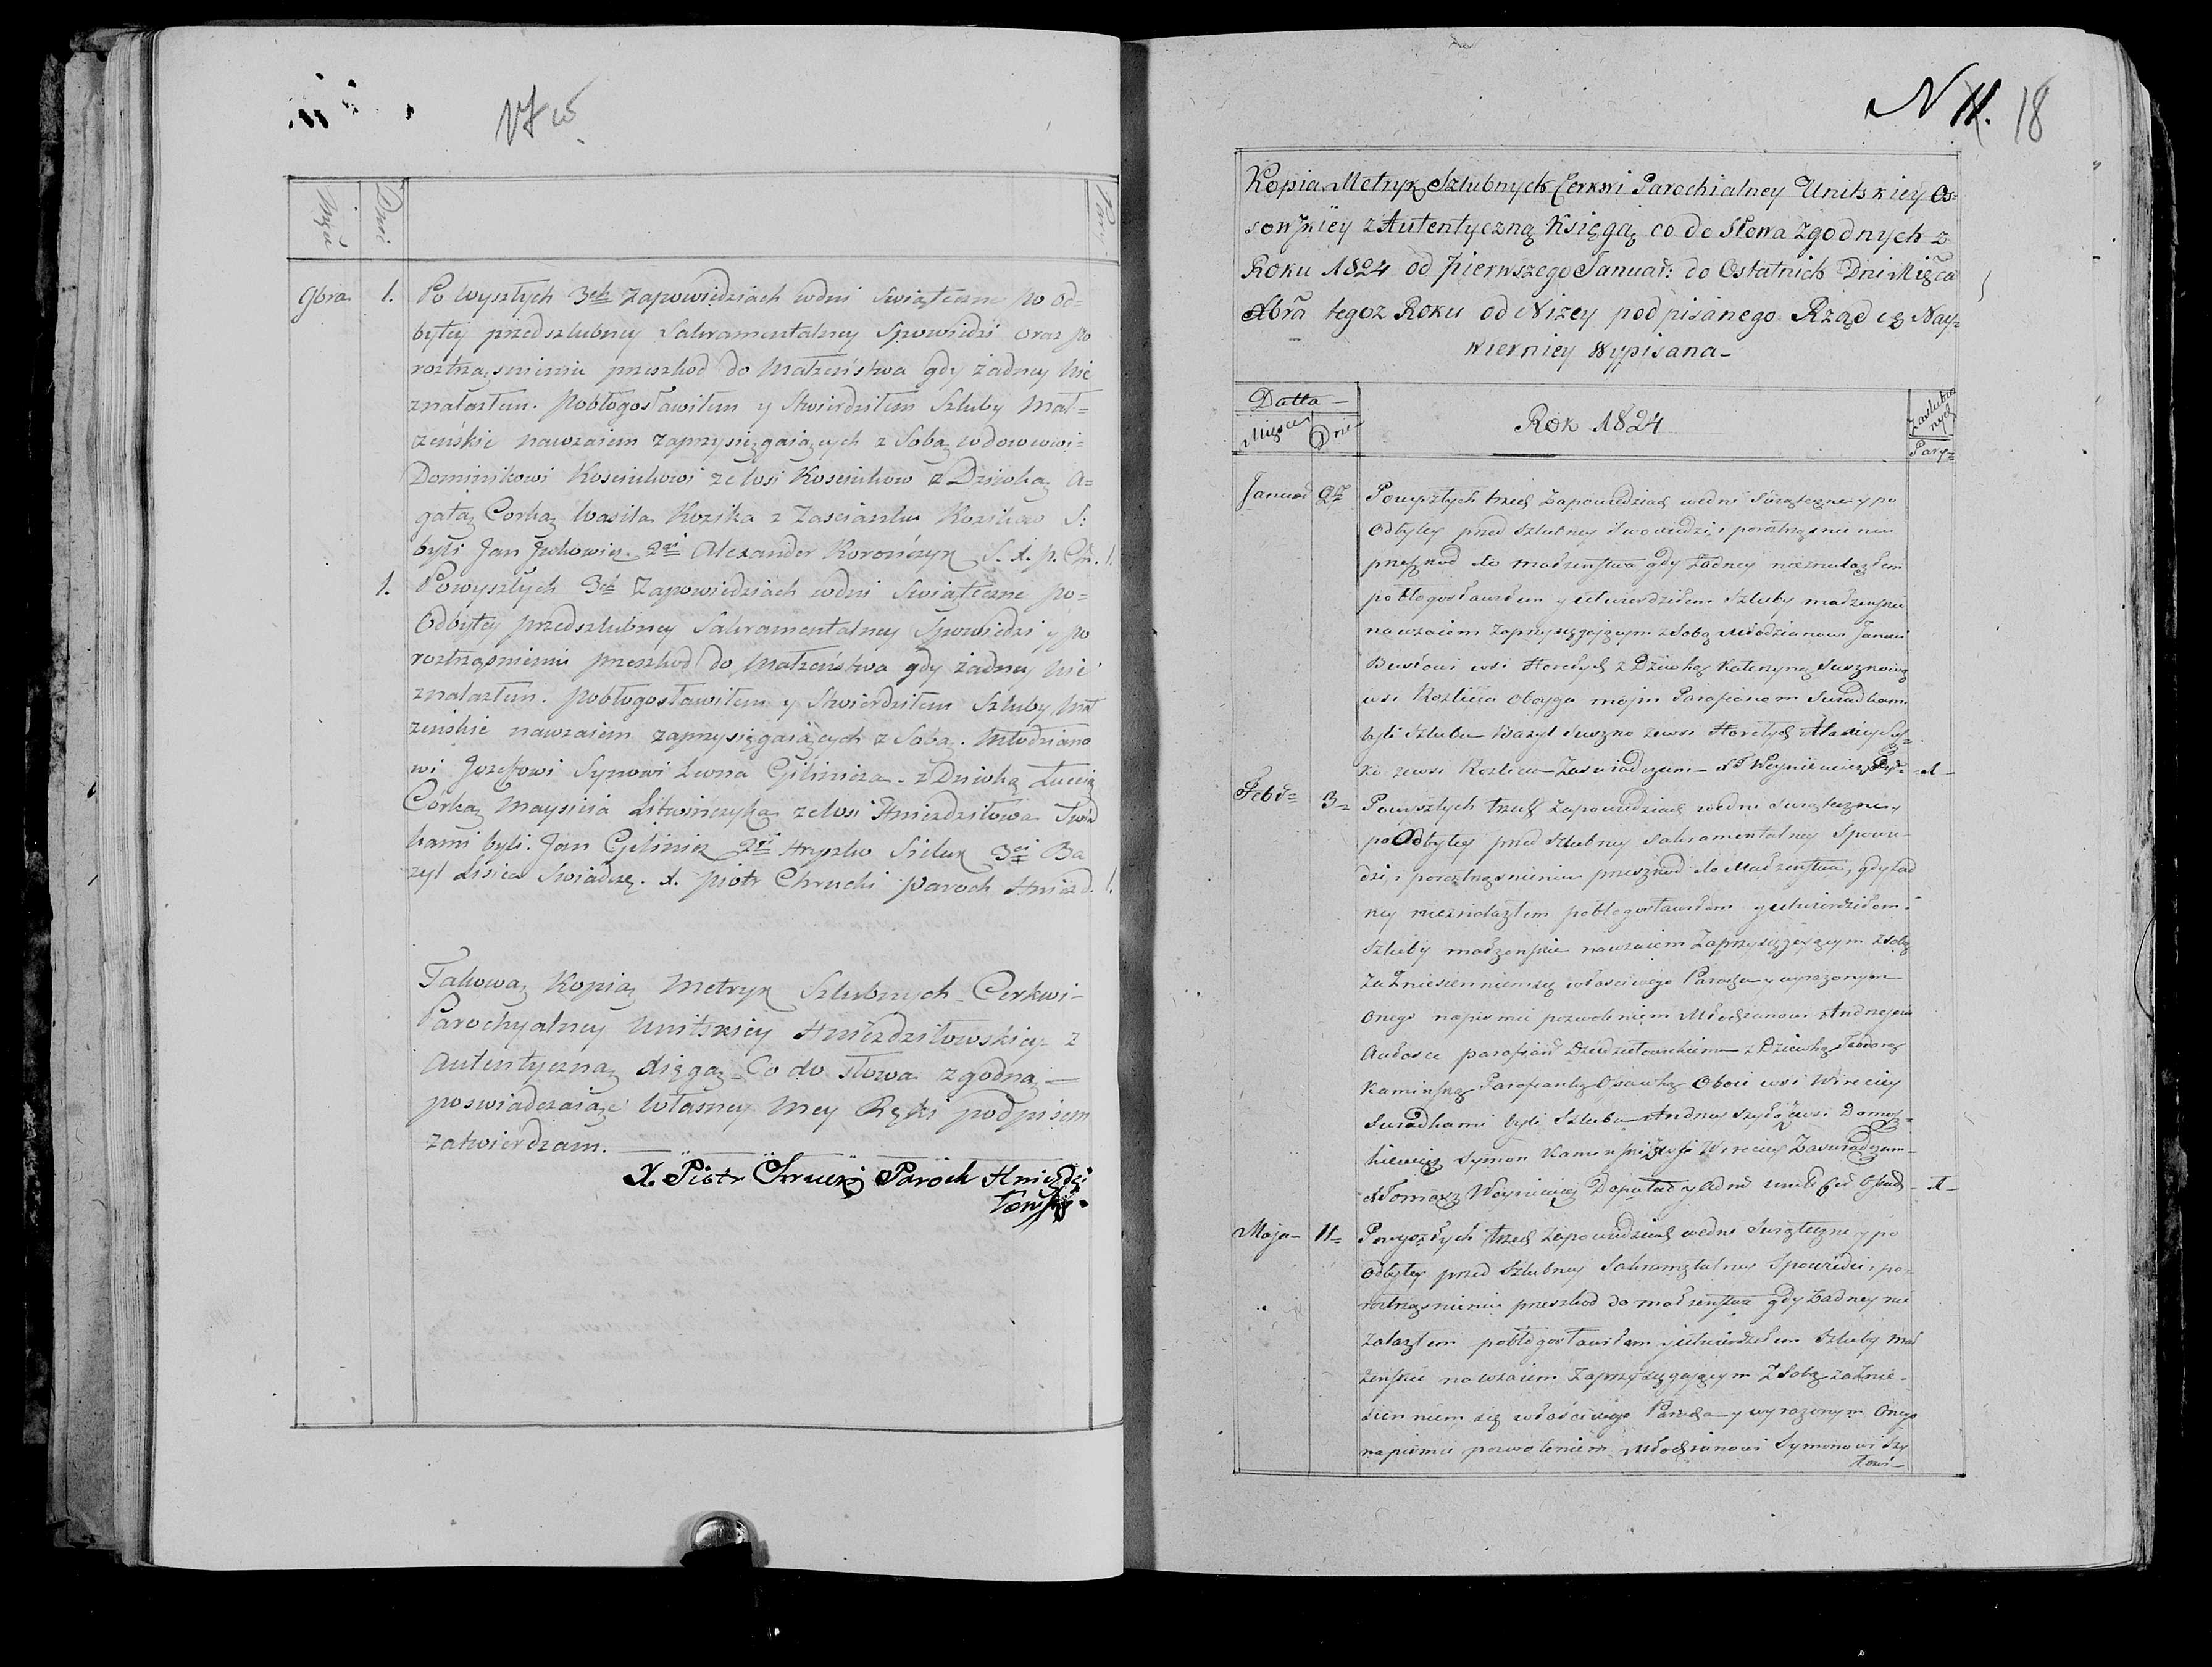 Mca
Dni
Pary
9bra 1. Po wyszłych 3ch zapowiedziach wdni Swiąteczne po od=
byłey przedszlubney Sakramentalney Spowiedzi oraz po
roztrząsnieniu przeszkod do Małżeństwa gdy żadney nie
znalazłem. Pobłogosławiłem y Stwierdziłem Szluby Mał=
żeńskie nawzaiem zaprzysięgaiących z Sobą wdowcowi=
Dominikowi Kosciukowi ze wsi Kosciukow z Dziwką A=
gatą Corką Wasila Kozika z Zascianku Kozikow S:
byli Jan Juchowicz 2gi Alexander Korończyk S. X. p. Ch. 1.
1. Powyszłych 3ch Zapowiedziach wdni Swiąteczne po=
Odbyłey przedszlubney Sakramentalney Spowiedzi y po
roztrząsnieniu przeszkod do Małżeństwa gdy żadney nie
znalazłem. pobłogosławiłem y Stwierdziłem Szluby Mał
żeńskie nawzaiem zaprzysięgaiących z Sobą. Młodziano
wi Jozefowi Synowi Leona Gilinicza - z Dziwką Łucią
Córką Maysieia Litwińczyka ze wsi Hniezdziłowa Swiad
kami byli. Jan Gilinicz 2gi Hryszko Sieluk 3ci Ba
zyl Lisica Swiadczę. X. Piotr Chrucki Paroch Hniezd. 1.
Takową Kopią Metryk Szlubnych Cerkwi-
Parochyalney Unitskiey Hniezdziłowskiey z
Autentyczną Xięgą Co do słowa zgodną -
poswiadczaiąc Własney Mey Ręki podpisem
zatwierdzam.
X. Piotr Chrucki Paroch Hniezdzi
łowski.
N 11. 18
Kopia Metryk Szlubnych Cerkwi Parochialney Unitskiey Os=
sowskiey z Autentyczną Księgą co do Słowa Zgodnych z
Roku 1824 od pierwszego Januar: do Ostatnich Dni Mięca
Xbra tegoz Roku od Nizey podpisanego Rządcę Nay=
wierniey Wypisana-
Datta -
Miesca Dni
Rok 1824
Zaslubio
nych
Pary=
Januar 27 Powyszłych trzech Zapowiedziach wedni Swiąteczne y po
Odbyłey przed Szlubney Spowiedzi, i poroztrząsnieniu
przeszkod do małżeństwa gdy żadney nieznalazłem
pobłogosławiłem y utwierdziłem Szluby małżeńskie
nawzaiem Zaprzysięgaiącym z Sobą Młodzianowi Janowi
wsi Horełych z Dziewką Kateryną Suszkową
wsi Kozlica Oboyga moim Parafianom Swiadkami
byli Szlubu Bazyl Suszko zewsi Horełych
ko zewsi Kozlica Zaswiadczam - X T Woyniewicz -1-
Febr= 3= Powyszłych trzech Zapowiedziach wedni Swiąteczne y
poOdbyłey przed Szlubney Sakramentalney Spowie-
dzi, i poroztrząsnieniu przeszkod do Małżeństwa, gdy żad
ney nieznalazłem pobłogosławiłem y utwierdziłem
Szluby małżeńskie nawzaiem Zaprzysięgaiącym z Sobą
Za Zniesienniemsię własciwego Parocha y wyrazonym
Onego napismie pozwoleniem Młodzianowi Andrejowi
parafiani z Dziewką Teodorą
Kaminską Parafianką Osowską Oboie wsi Wireciey
Swiadkami byli Szlubu Andrus
Symon Kaminski Zaswiadczam-
X Tomasz Woyniewicz -1-
Maja- 11= Powyszłych trzech Zapowiedziach wedni Swiąteczne y po
Odbyłey przed Szlubney Sakramętalney Spowiedzi, i po=
roztrząsnieniu przeszkod do małżeństwa gdy żadney nie
Zalazłem pobłogosławiłem y utwierdziłem Szluby Mał
żeńskie nawzaiem Zaprzysięgaiącym Z Sobą za Znie-
sienniem się własciwego Parocha y wyrazonym Onego
napismie pozwoleniem Młodzianowi Symonowi Szy
łowi-